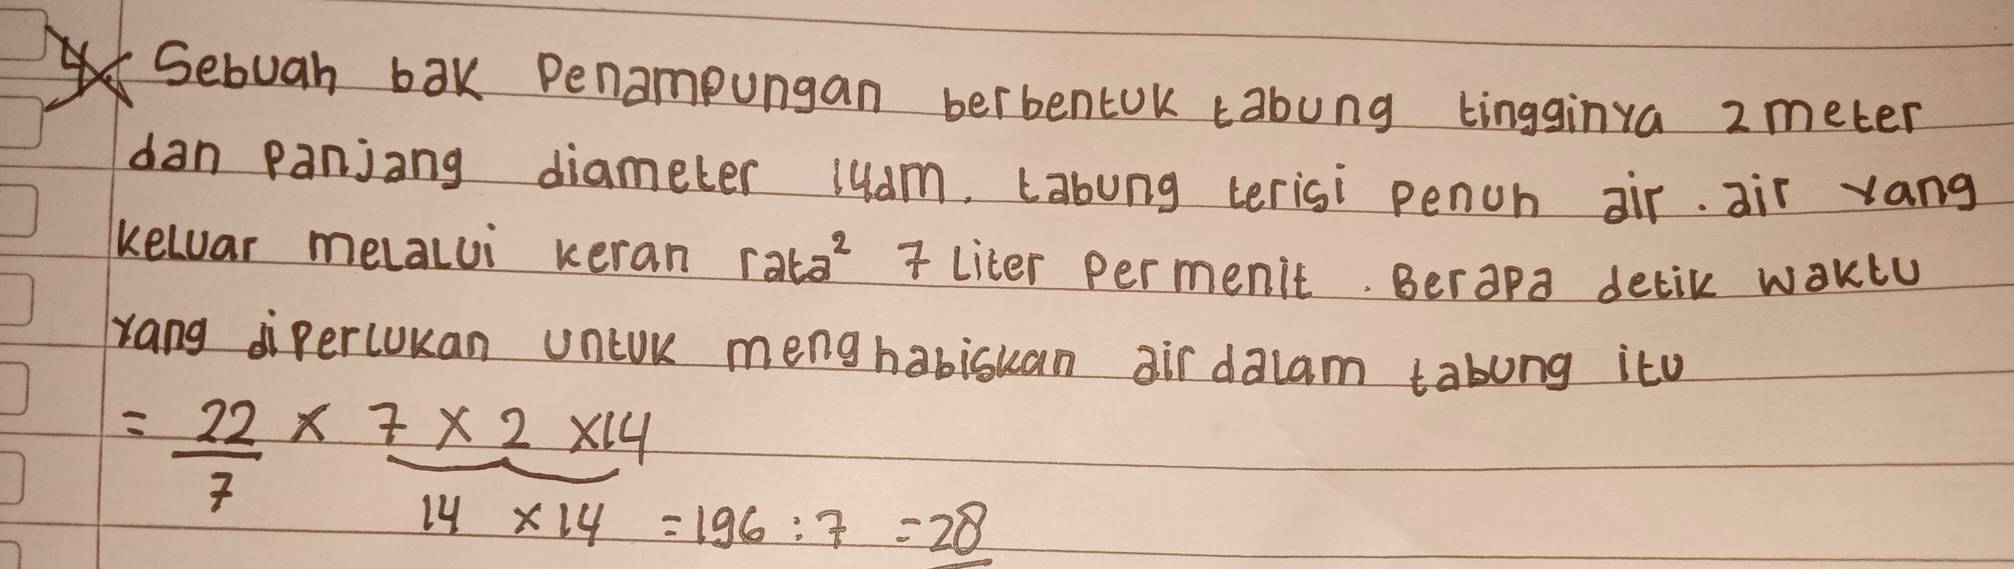 4. Sebuah bak Penampungan berbentuk tabung tingginya 2 meter
dan Panjang diameter 14dm. tabung terisi Penuh air. air yang
keluar melalui keran rata² 7 Liter Permenit. Berapa detik waktu
yang diperlukan untuk menghabiskan air dalam tabung itu
= 22/7 × 7 × 2 × 14
14 × 14 = 196 : 7 = 28